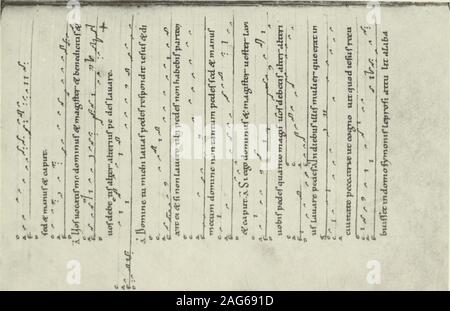 sed & manus & caput.
A Vos uocatis me dominus & magister &
uos debe tis alter alterius pe des lauare.
A Domine tu michi lauas pedes respondit iesus & di
xit ei & si non lauero tibi pedes non habebis partem
mecum domine non tantum pedes sed & manus
& caput. A Si ego dominus & magister uester
uobis pedes quanto magis uos debetis alter alteri
us lauare pedes In diebus illis mulier que erat in
ciuitate ut cogno uit quod iesus accu
buisset in domo symonis leprosi alaba
2AG691D